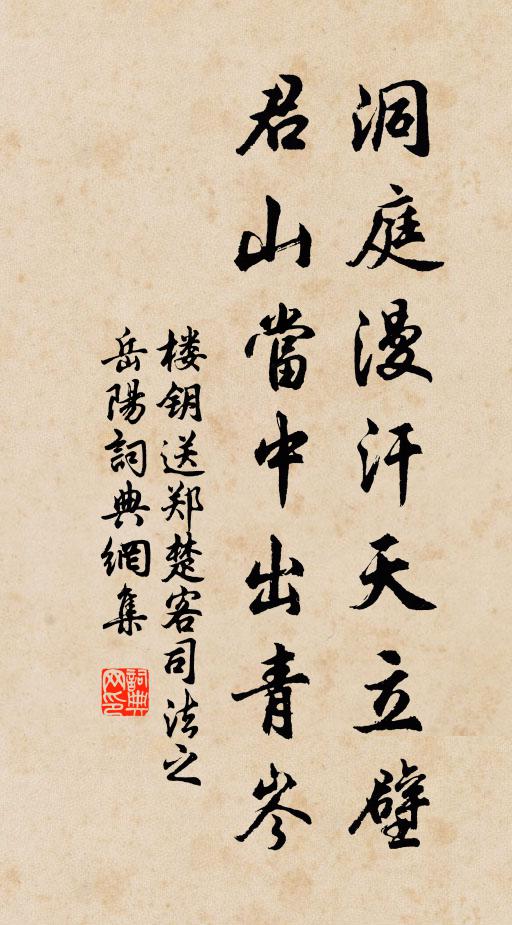 洞庭漫汗天立壁
君山當中出青岑
楼钥送郑楚客司法之
岳陽詞典網集
詞典
网印